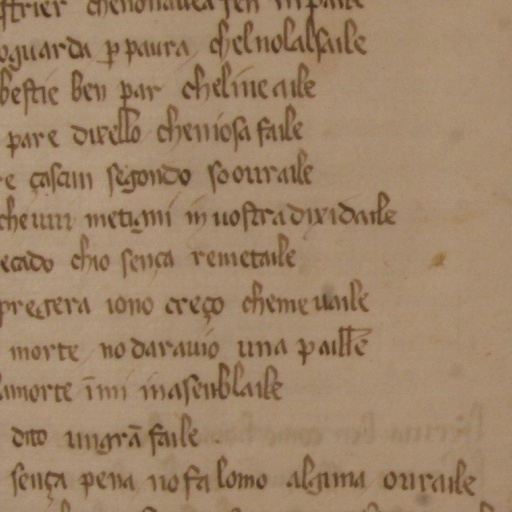 strier chenonauea sen in paile
oguarda p paura chel nolalsaile
bestie ben par cheline aile
pare dixello cheniosa faile
re çascun segondo so ouraile
che uui metigmi in uostra dixidaile
ecado chio sença remetaile
pregera iono creço cheme uaile
morte no darauio una paille
lamorte īmi inasenblaile
dito ungrā faile
sença pena no fa lomo alguna ouraile